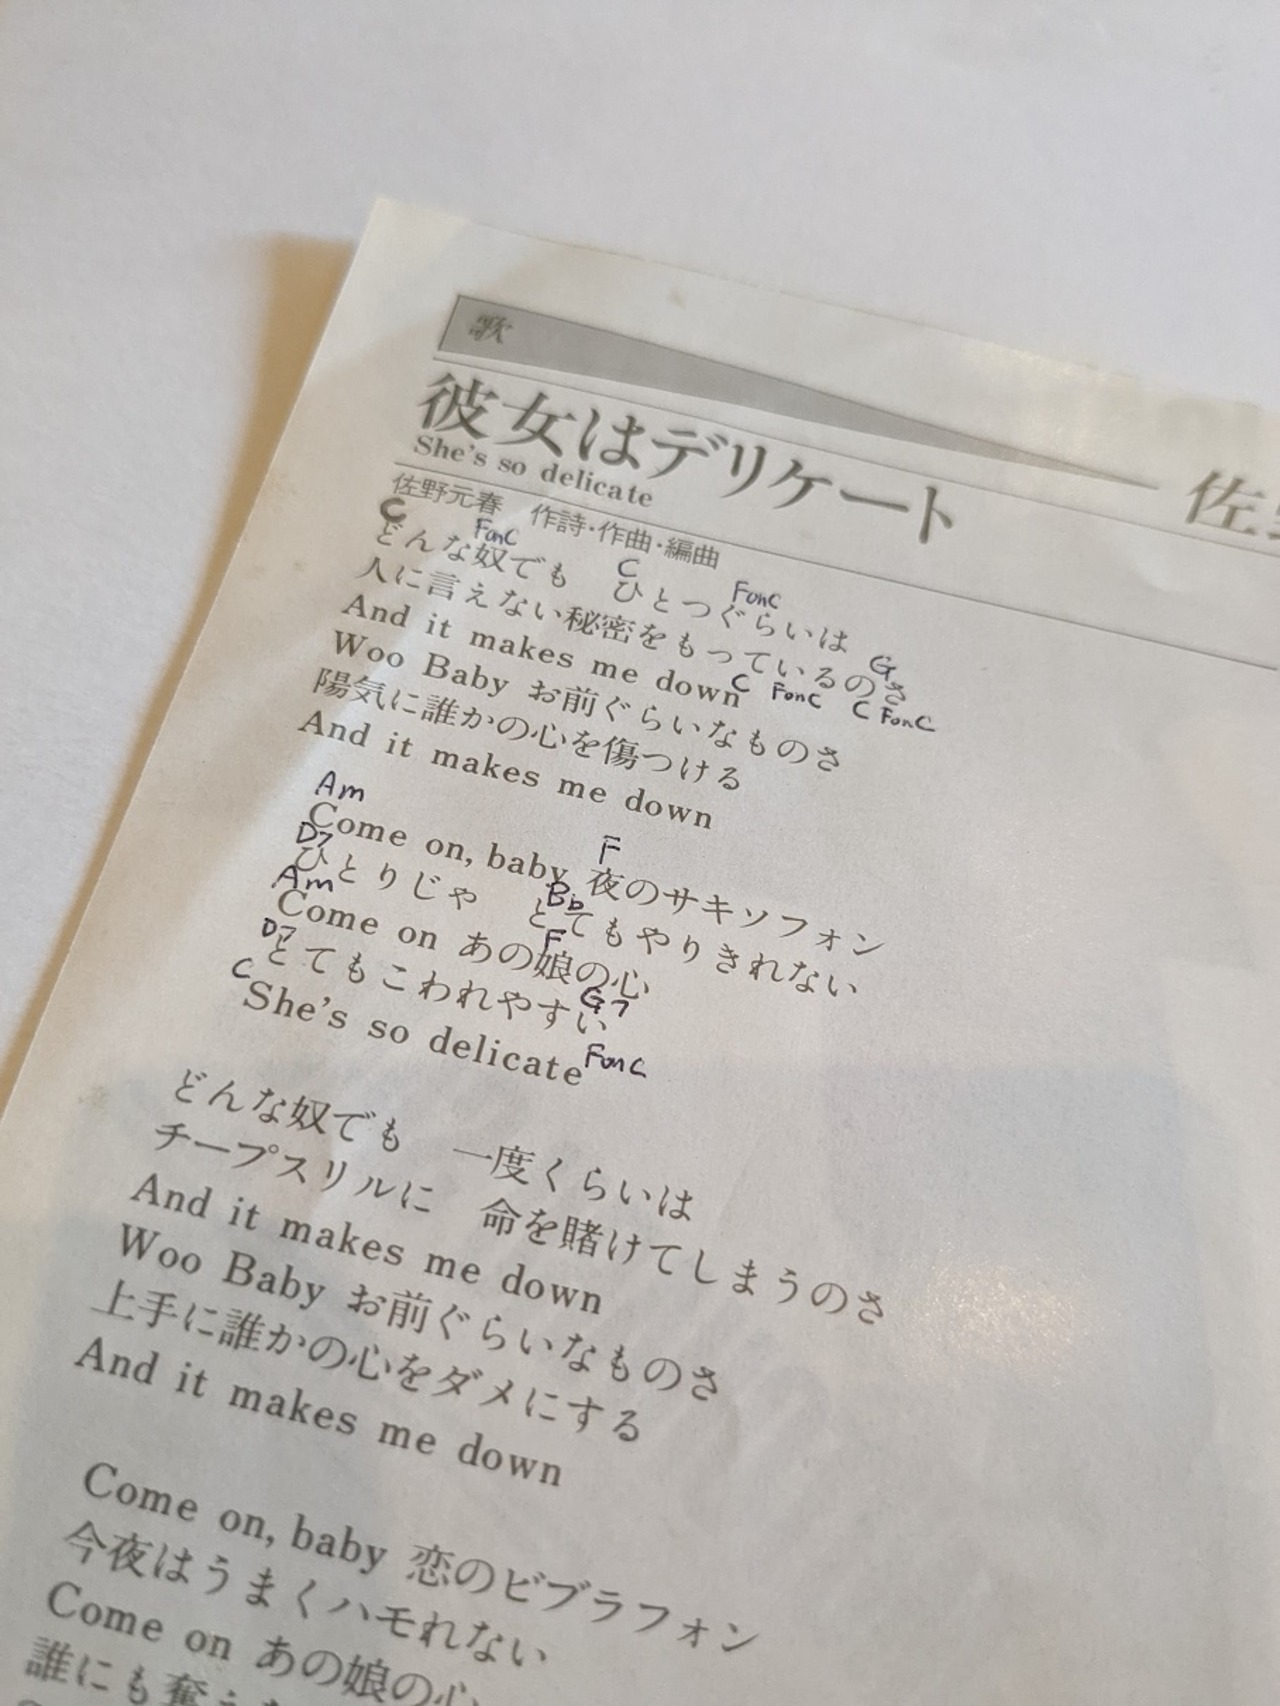 歌
彼女はデリケート
She's so delicate
佐
佐野元春 作詩・作曲・編曲
C FonC C FonC
どんな奴でも ひとつぐらいは
G
人に言えない秘密をもっているのさ
C FonC C FonC
And it makes me down
Woo Baby お前ぐらいなものさ
陽気に誰かの心を傷つける
And it makes me down
Am F
Come on, baby 夜のサキソフォン
D7 B♭
ひとりじゃ とてもやりきれない
Am F
Come on あの娘の心
D7 G7
とてもこわれやすい
C FonC
She's so delicate
どんな奴でも 一度くらいは
チープスリルに 命を賭けてしまうのさ
And it makes me down
Woo Baby お前ぐらいなものさ
上手に誰かの心をダメにする
And it makes me down
Come on, baby 恋のビブラフォン
今夜はうまくハモれない
Come on あの娘の心
誰にも奪